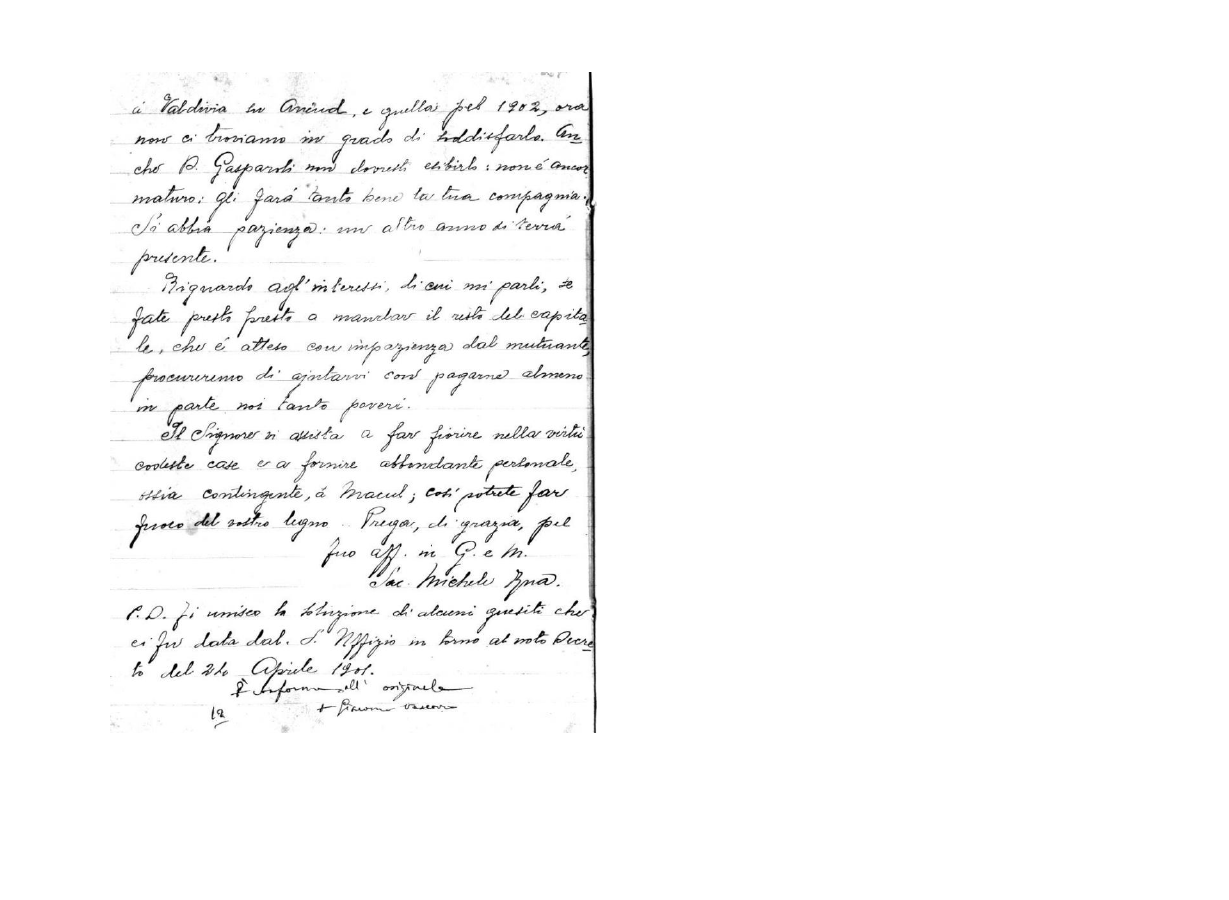 á Valdivia su Ancud, e quella pel 1902, ora
non ci troviamo in grado di soddisfarlo. An=
che D. Gasparoli non dovresti esibirlo: non é ancor
maturo: gli fará tanto bene la tua compagnia.
Si abbia pazienza: un altro anno si terrá
presente.
Riguardo agl'interessi, di cui mi parli, se
fate presto presto a mandar il resto del capita=
le, che é atteso con impazienza dal mutuante,
procureremo di ajutarvi con pagarne almeno
in parte noi tanto poveri.
Il Signore vi assista a far fiorire nella virtú
codeste case e a fornire abbondante personale,
ossia contingente, á Macul; cosí potrete far
fuoco del vostro legno. Prega, di grazia, pel
tuo aff. in G. e M.
Sac. Michele Rua.
P.D. Ti unisco la soluzione di alcuni quesiti che
ci fu data dal S. Uffizio in torno al noto Decre=
to del 24 Aprile 1901.
É conforme all' originale
+ Giacomo
12